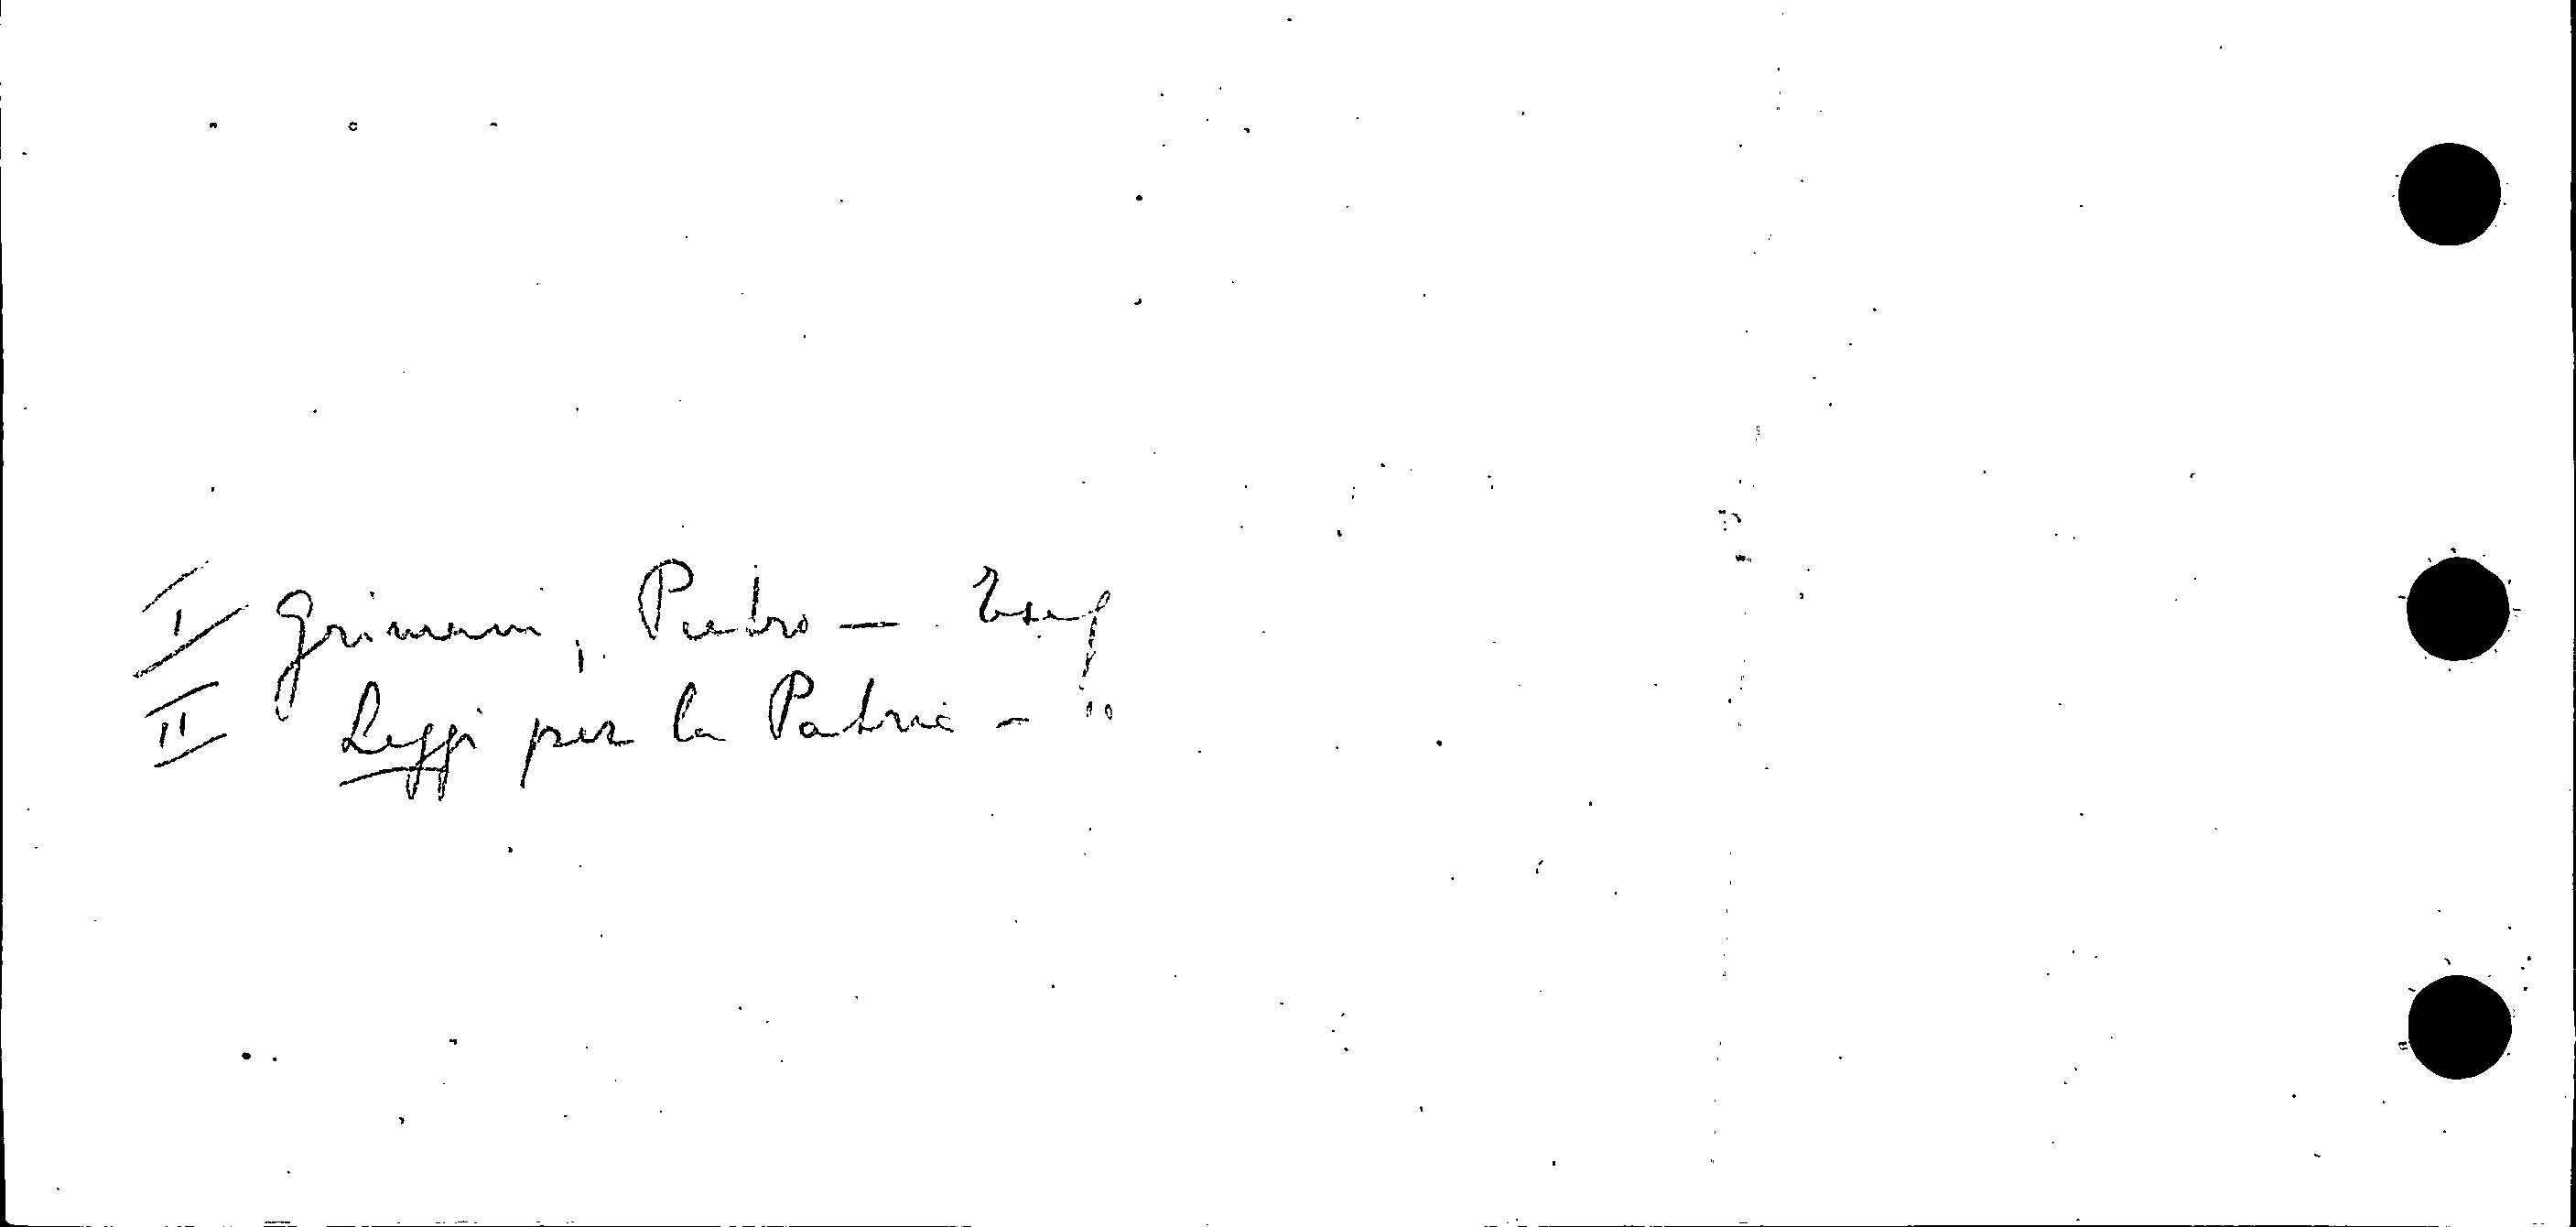 I Grimani, Pietro —
II Leggi per la Patria - "